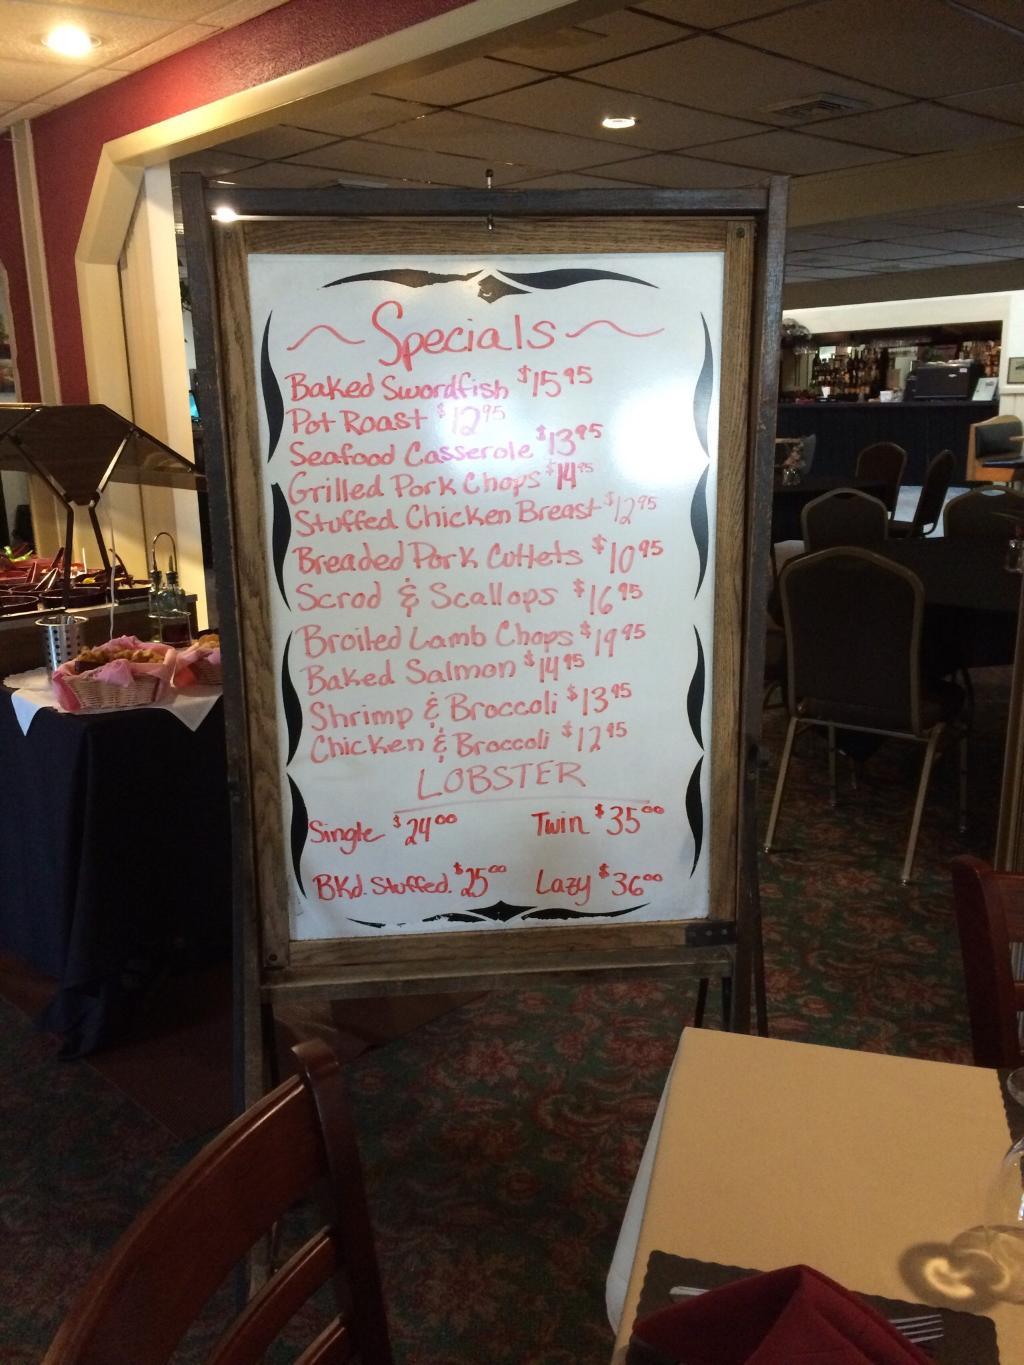 Specials
Baked Swordfish $15.95
Pot Roast $12.95
Seafood Casserole $13.95
Grilled Pork Chops $14.95
Stuffed Chicken Breast $12.95
Breaded Pork Cutlets $10.95
Scrod & Scallops $16.95
Broiled Lamb Chops $19.95
Baked Salmon $14.95
Shrimp & Broccoli $13.95
Chicken & Broccoli $12.95
LOBSTER
Single $24.00 Twin $35.00
BKd. Stuffed. $25.00 Lazy $36.00